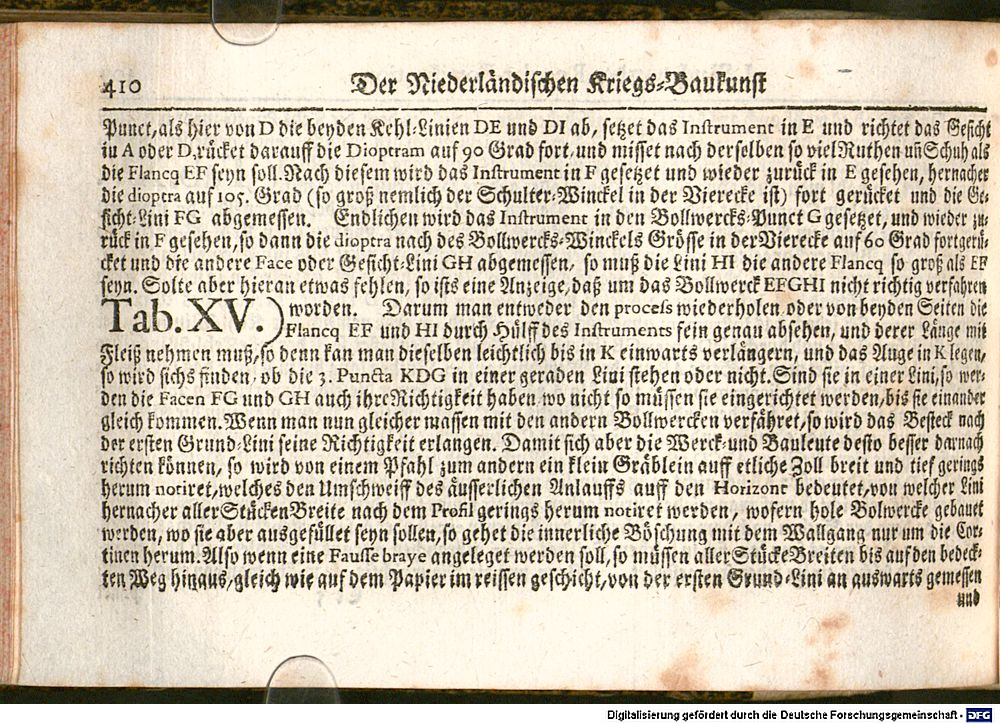 410 Der Niederländischen Kriegs-Baukunst
Punct, als hier von D die beyden Kehl-Linien DE und DI ab, setzet das Instrument in E und richtet das Gesicht
in A oder D, rücket darauff die Dioptram auf 90 Grad fort, und misset nach derselben so viel Ruthen uñ Schuh als
die Flancq EF seyn soll. Nach diesem wird das Instrument in F gesetzet und wieder zurück in E gesehen, hernacher
die dioptra auf 105. Grad (so groß nemlich der Schulter-Winckel in der Vierecke ist) fort gerücket und die Ge-
sicht-Lini FG abgemessen. Endlichen wird das Instrument in den Bollwercks-Punct G gesetzet, und wieder zu-
rück in F gesehen, so dann die dioptra nach des Bollwercks-Winckels Grösse in der Vierecke auf 60 Grad fortgerü-
cket und die andere Face oder Gesicht-Lini GH abgemessen, so muß die Lini HI die andere Flancq so groß als EF
seyn. Solte aber hieran etwas fehlen, so ists eine Anzeige, daß um das Bollwerck EFGHI nicht richtig verfahren
Tab. XV. ) worden. Darum man entweder den process wiederholen oder von beyden Seiten die
Flancq EF und HI durch Hülff des Instruments fein genau absehen, und derer Länge mit
Fleiß nehmen muß, so denn kan man dieselben leichtlich bis in K einwarts verlängern, und das Auge in K legen,
so wird sichs finden, ob die 3. Puncta KDG in einer geraden Lini stehen oder nicht. Sind sie in einer Lini, so wer-
den die Facen FG und GH auch ihre Richtigkeit haben wo nicht so müssen sie eingerichtet werden, bis sie einander
gleich kommen. Wenn man nun gleicher massen mit den andern Bollwercken verfähret, so wird das Besteck nach
der ersten Grund-Lini seine Richtigkeit erlangen. Damit sich aber die Werck- und Bauleute desto besser darnach
richten können, so wird von einem Pfahl zum andern ein klein Gräblein auff etliche Zoll breit und tief gerings
herum notiret, welches den Umschweiff des äusserlichen Anlauffs auff den Horizont bedeutet, von welcher Lini
hernacher aller Stücken Breite nach dem Profil gerings herum notiret werden, wofern hole Bolwercke gebauet
werden, wo sie aber ausgefüllet seyn sollen, so gehet die innerliche Böschung mit dem Wallgang nur um die Cor-
tinen herum. Also wenn eine Fausse braye angeleget werden soll, so müssen aller Stücke Breiten bis auf den bedeck-
ten Weg hinaus, gleich wie auf dem Papier im reissen geschicht, von der ersten Grund-Lini an auswarts gemessen
und
Digitalisierung gefördert durch die Deutsche Forschungsgemeinschaft - DFG